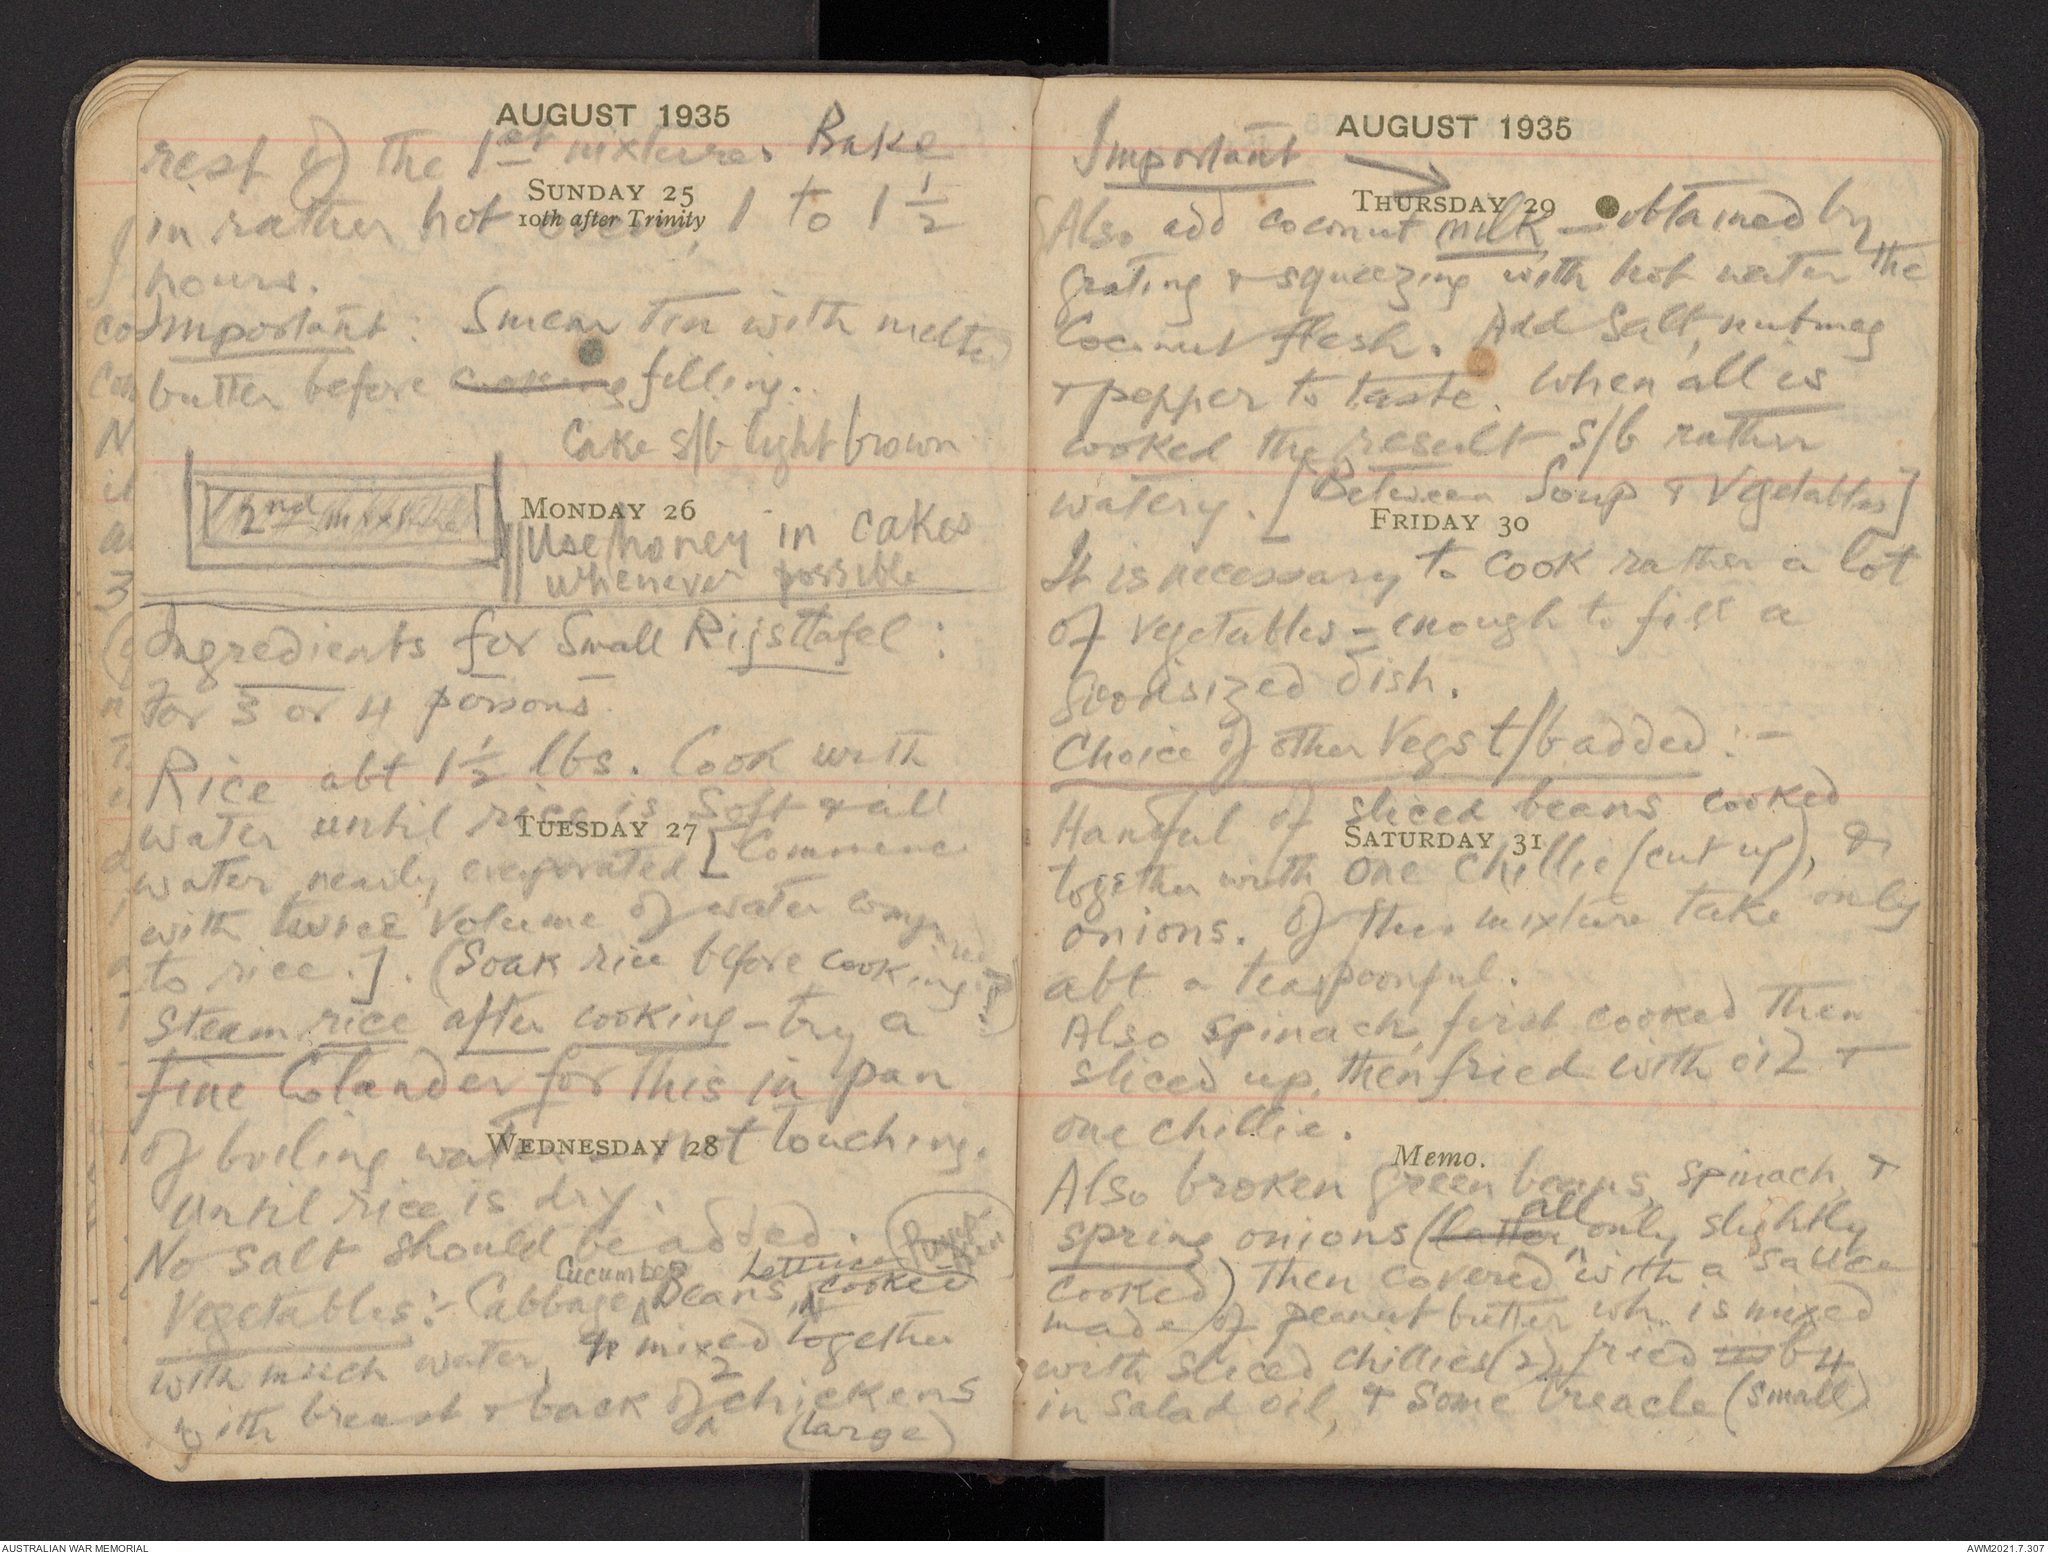 AUGUST 1935
rest of the 1st mixture. Bake
SUNDAY 25
in rather hot oven, 1 to 1 1/2
10th after Trinity
hours.
Important: Smear tin with melted
butter before cooking filling.
Cake s/b light brown
2nd mixture
MONDAY 26
Use honey in cakes
whenever possible
Ingredients for Small Rijsttafel:
For 3 or 4 persons.
Rice abt 1 1/2 lbs. Cook with
water until rice is soft & all
TUESDAY 27
water nearly evaporated [Commence
with twice volume of water compared
to rice.]. (Soak rice before cooking?)
Steam rice after cooking - try a
fine Colander for this in pan
of boiling water - not touching.
WEDNESDAY 28
Until rice is dry.
No salt should be added.
Cucumber Lettuce
Vegetables:- Cabbage Beans, cooked
with much water, & mixed together
with breast & back of 2 chickens
(large)
AUGUST 1935
Important
THURSDAY 29
Also add coconut milk - obtained by
grating & squeezing with hot water the
Coconut flesh. Add Salt, nutmeg
& pepper to taste. When all is
cooked the result s/b rather
watery. [Between Soup & Vegetables]
FRIDAY 30
It is necessary to cook rather a lot
of vegetables - enough to fill a
Goodsized dish.
Choice of other Vegs t/b added:-
Handful of sliced beans cooked
SATURDAY 31
together with one chillie (cut up), &
onions. Of this mixture take only
abt a teaspoonful.
Also spinach, first cooked then
sliced up, then fried with oil &
one chillie.
Memo.
Also broken green beans, spinach, &
all
spring onions (latter only slightly
cooked) then covered with a sauce
made of peanut butter wh. is mixed
with sliced chillies (2), fried b4
in salad oil, & some treacle (small)
AUSTRALIAN WAR MEMORIAL
AWM2021.7.307